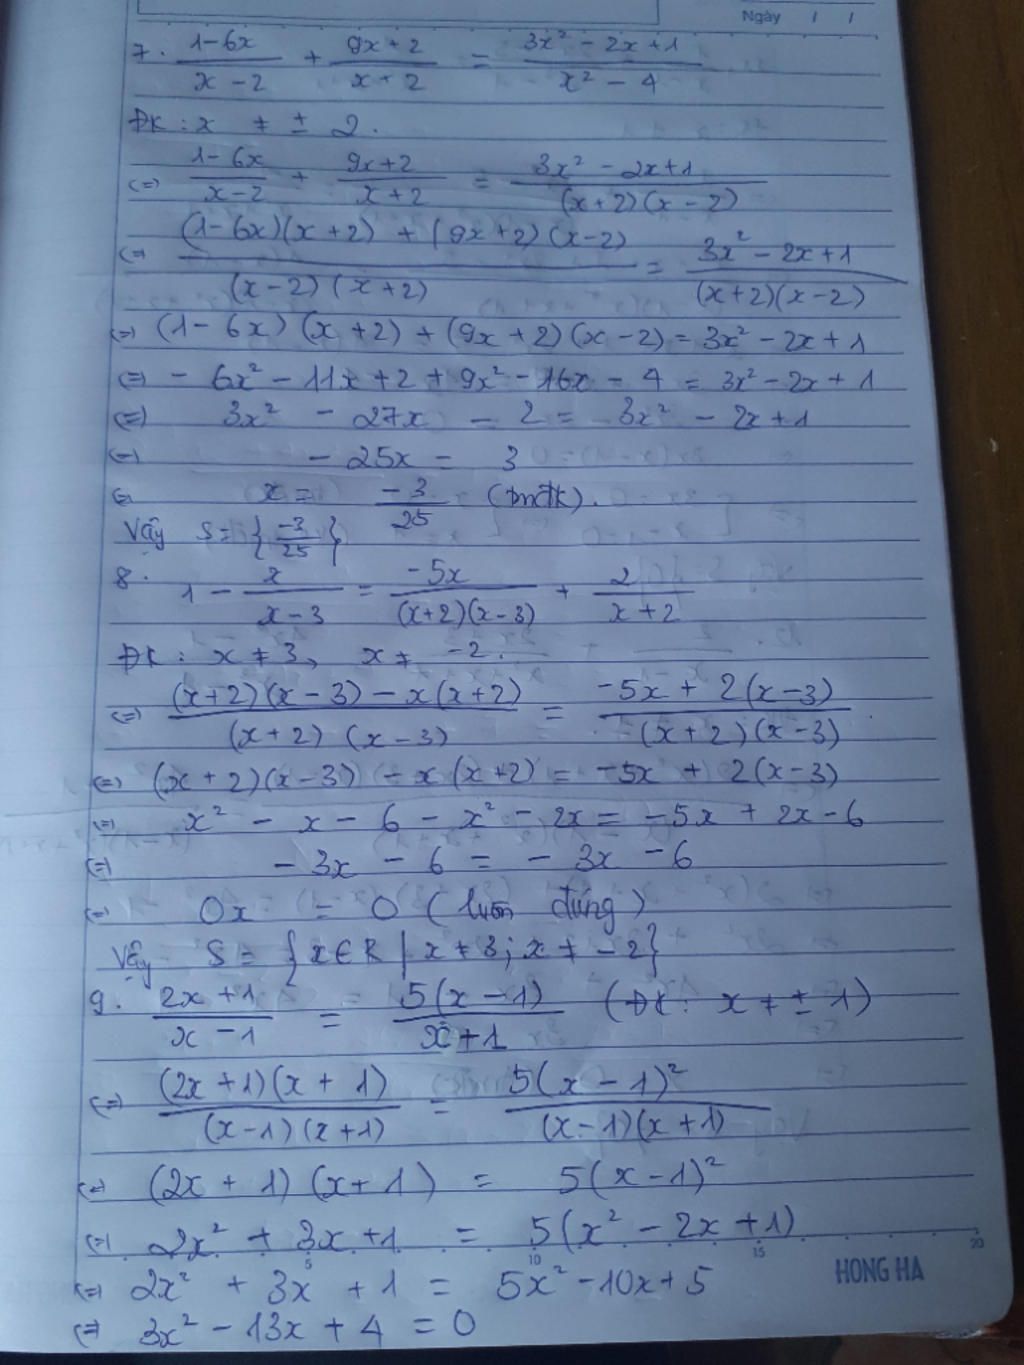 Ngày / /
7. (1-6x)/(x-2) + (9x+2)/(x+2) = (3x² - 2x+1)/(x² - 4)
ĐK : x ≠ ± 2.
(=) (1-6x)/(x-2) + (9x+2)/(x+2) = (3x² - 2x+1)/((x+2)(x-2))
(=) ((1-6x)(x+2) + (9x+2)(x-2))/((x-2)(x+2)) = (3x² - 2x+1)/((x+2)(x-2))
(=) (1-6x)(x+2) + (9x+2)(x-2) = 3x² - 2x+1
(=) - 6x² - 11x+2 + 9x² - 16x - 4 = 3x² - 2x + 1
(=) 3x² - 27x - 2 = 3x² - 2x+1
(=) - 25x = 3
(=) x = -3/25 (tmđk).
Vậy S = {-3/25}
8. 1 - x/(x-3) = -5x/((x+2)(x-3)) + 2/(x+2)
ĐK : x ≠ 3, x ≠ -2.
(=) ((x+2)(x-3) - x(x+2))/((x+2)(x-3)) = (-5x + 2(x-3))/((x+2)(x-3))
(=) (x+2)(x-3) - x(x+2) = -5x + 2(x-3)
(=) x² - x - 6 - x² - 2x = -5x + 2x - 6
(=) - 3x - 6 = - 3x - 6
(=) 0x = 0 (luôn đúng)
Vậy S = {x∈R / x ≠ 3; x ≠ -2}
9. (2x+1)/(x-1) = 5(x-1)/(x+1) (ĐK: x ≠ ± 1)
(=) (2x+1)(x+1)/((x-1)(x+1)) = 5(x-1)²/((x-1)(x+1))
(=) (2x+1)(x+1) = 5(x-1)²
(=) 2x² + 3x+1 = 5(x² - 2x+1)
5 10 15 20
HONG HA
(=) 2x² + 3x + 1 = 5x² -10x+5
(=) 3x² - 13x + 4 = 0